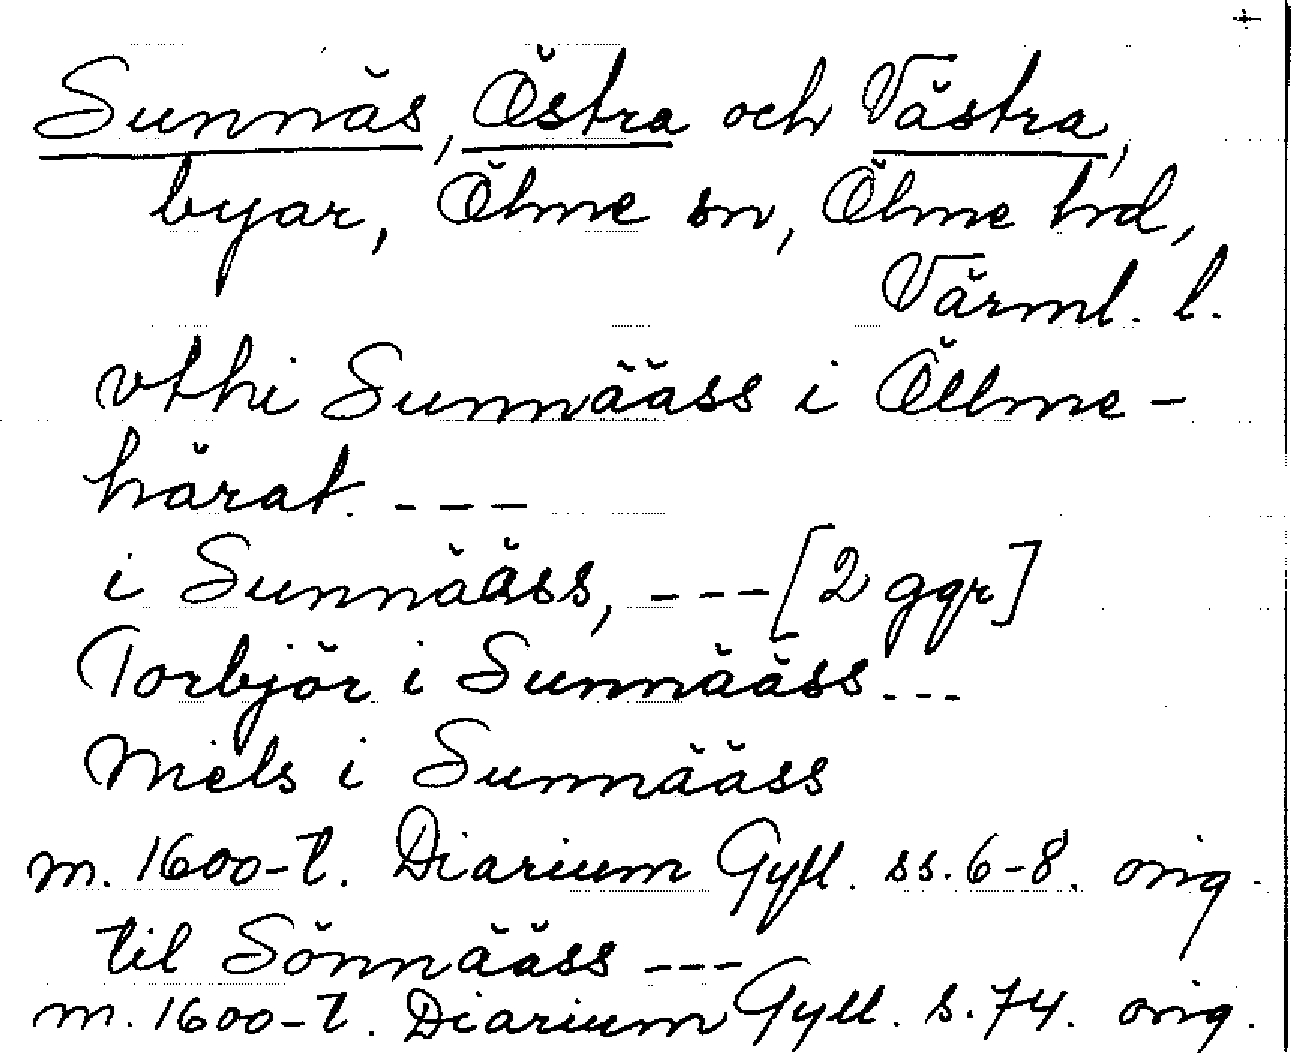 Sunnäs, Östra och Västra,
byar, Ölme sn, Ölme hd,
Värml. l.
vthi Sunnääss i Öllme-
härat. - - -
i Sunnääss, - - - [2 ggr]
Torbjör i Sunnääss - - -
Niels i Sunnääss
m. 1600-t. Diarium Gyll. ss. 6-8. orig.
til Sönnääss - - -
m. 1600-t. Diarium Gyll. s. 74. orig.